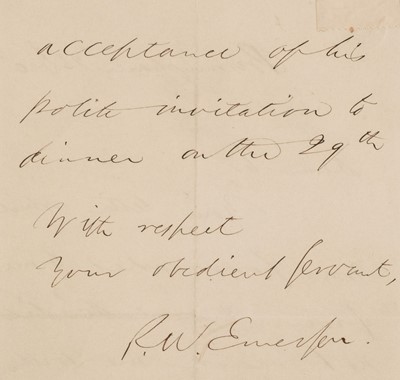 acceptance of his
polite invitation to
dinner on the 29th
With respect
Your obedient servant,
R. W. Emerson.